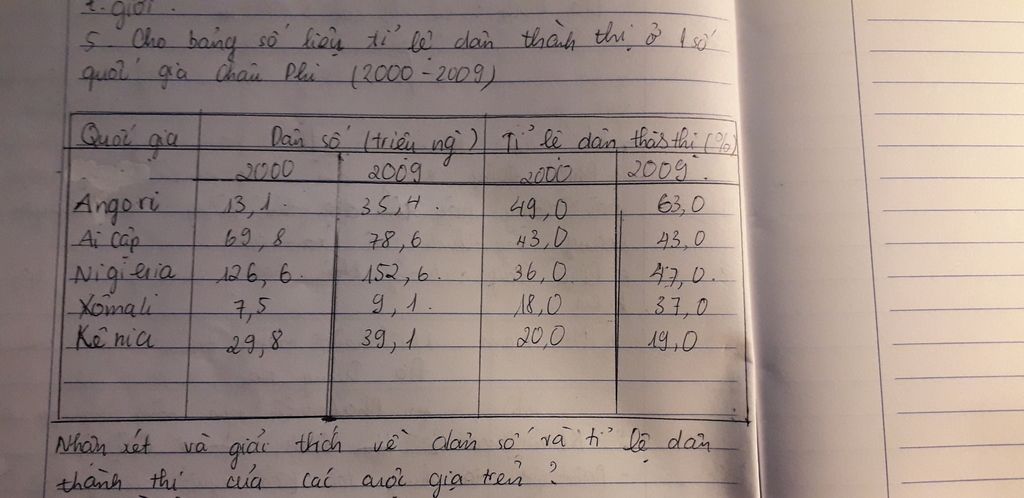 t. giới.
5. Cho bảng số liệu tỉ lệ dân thành thị ở 1 số
quốc gia Châu Phi (2000 - 2009)
Quốc gia Dân số (triệu ng) Tỉ lệ dân thàs thị (%)
2000 2009 2000 2009.
Angori 13,1. 35,4 49,0 63,0
Ai Cập 69,8 78,6 43,0 43,0
Nigiêria 126,6. 152,6. 36,0 47,0.
Xômali 7,5 9,1. 18,0 37,0
Kênia 29,8 39,1 20,0 19,0
Nhận xét và giải thích về dân số và tỉ lệ dân
thành thị của các quốc gia trên?